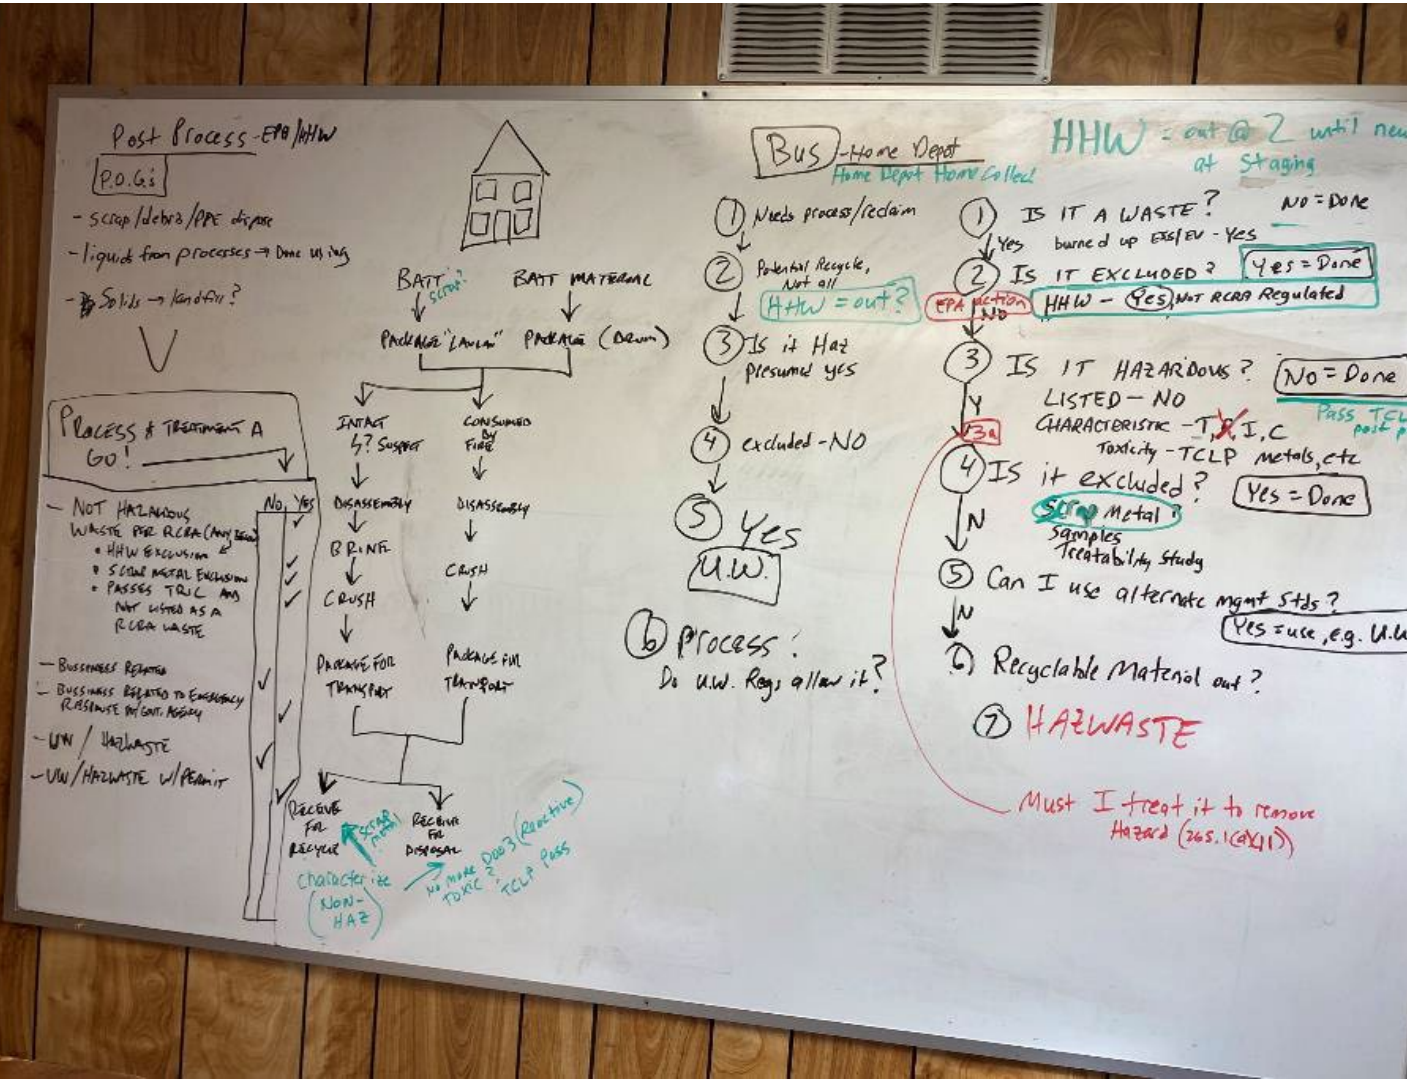 Post Process - EPA/HHW
P.O.G's
- scrap/debra/PPE dispose
- liquid from processes → Done using
- Solids → landfill?
PROCESS & TREATMENT A
GO!
No YES
- NOT HAZARDOUS
WASTE PER RCRA (ANY BELOW)
• HHW EXCLUSION
• SCRAP METAL EXCLUSION
• PASSES TCLP AND
NOT LISTED AS A
RCRA WASTE
- BUSSINESS RELATED
- BUSSINESS RELATED TO EMERGENCY
RESPONSE MGNT. AGENCY
- UW / HAZWASTE
- UW/HAZWASTE W/PERMIT
BATT
scrap?
BATT MATERIAL
PACKAGE
PACKAGE (DRUM)
INTACT
? SUSPECT
CONSUMED
BY
FIRE
DISASSEMBLY
DISASSEMBLY
BRINE
CRUSH
CRUSH
PACKAGE FOR
TRANSPORT
PACKAGE FOR
TRANPORT
RECEIVE
FOR
RECYCLE
SCRAP
METAL
RECEIVE
FOR
DISPOSAL
Characterize
(NON-
HAZ)
NO MORE D003 (Reactive)
TOXIC?
TCLP PASS
Bus - Home Depot
Home Depot Home Collect
1 Needs process/reclaim
2 Potential Recycle,
Not all
HHW = out?
3 Is it Haz
presumed yes
4 excluded - NO
5 Yes
U.W.
6 process?
Do U.W. Regs allow it?
HHW = out @ 2 until new
at Staging
1 IS IT A WASTE?
NO = Done
Yes burned up ESS/EV - Yes
2 IS IT EXCLUDED?
Yes = Done
EPA action
NO
HHW - Yes, NOT RCRA Regulated
3 IS IT HAZARDOUS?
No = Done
Y
LISTED - NO
Pass TCL
post p
3a
CHARACTERISTIC - T, R, I, C
Toxicity - TCLP metals, etc
4 Is it excluded?
Yes = Done
N
Scrap Metal?
Samples
Treatability Study
5 Can I use alternate mgmt stds?
N
Yes = use, e.g. U.W
6 Recyclable Material out?
7 HAZWASTE
Must I treat it to remove
Hazard